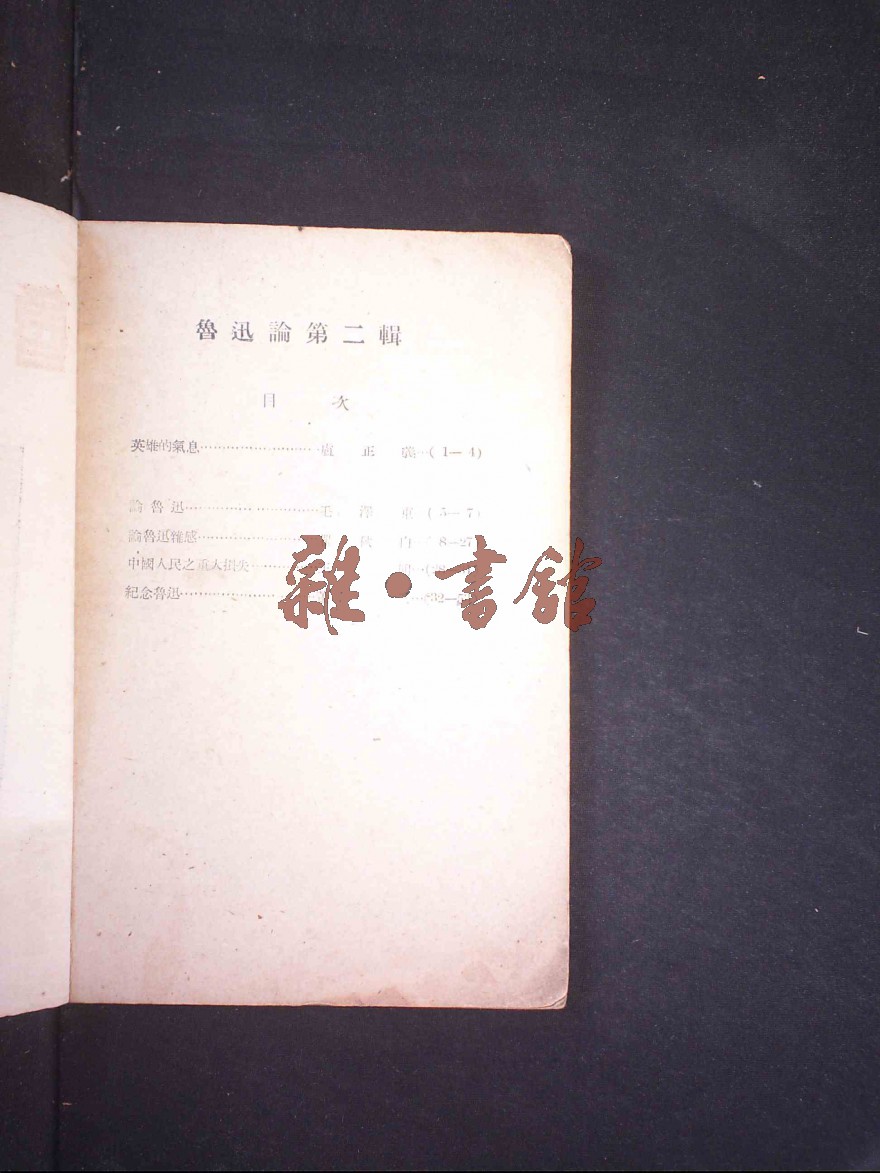 魯迅論第二輯
目 次
英雄的氣息……………………盧正義…(1—4)
論魯迅……………………毛澤東(5—7)
論魯迅雜感……………………秋白(8—27
中國人民之重大損失
紀念魯迅……………………(32—
雜·書館